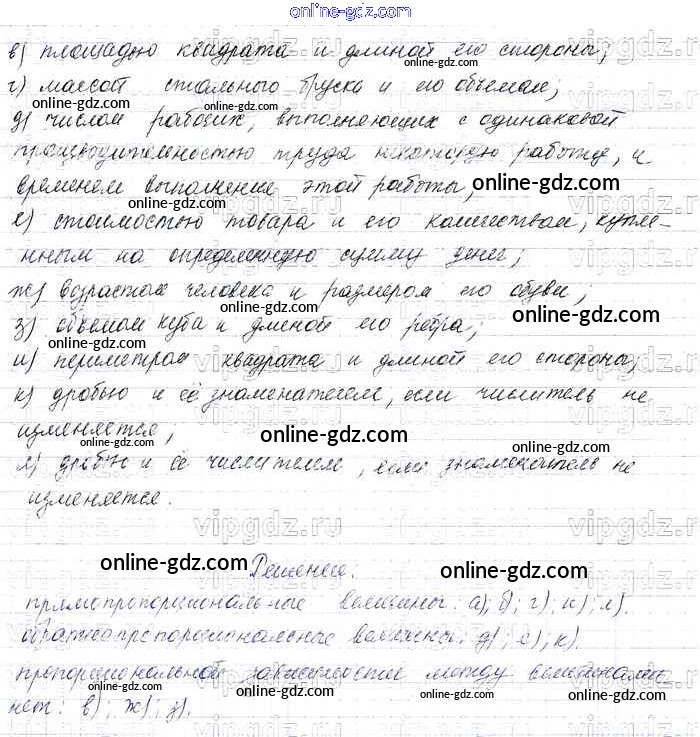 online-gdz.com
в) площадью квадрата и длиной его стороны;
г) массой стального бруска и его объемом;
д) числом рабочих, выполняющих с одинаковой
производительностью труда некоторую работу, и
временем выполнения этой работы;
е) стоимостью товара и его количеством, куплен-
ным на определенную сумму денег;
ж) возрастом человека и размером его обуви;
з) объемом куба и длиной его ребра;
и) периметром квадрата и длиной его стороны;
к) дробью и её знаменателем, если числитель не
изменяется;
л) дробью и её числителем, если знаменатель не
изменяется.
Решение:
прямопропорциональные величины: а); б); г); и); л).
обратнопропорциональные величины: д); е); к).
пропорциональной зависимости между величинами
нет: в); ж); з).